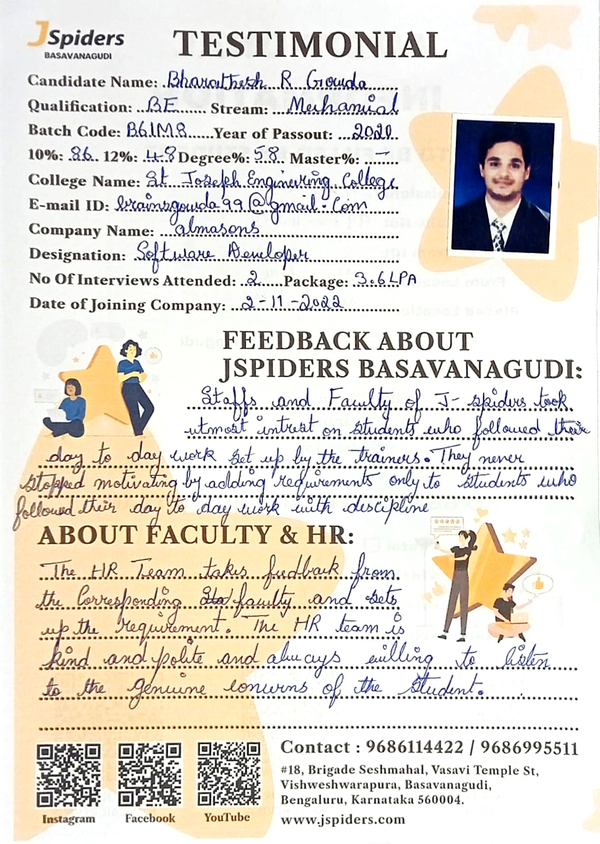 JSpiders
BASAVANAGUDI
TESTIMONIAL
Candidate Name: Bharathesh R Gouda
Qualification: BE Stream: Mechanical
Batch Code: B61M8 Year of Passout: 2020
10%: 86 12%: 48 Degree%: 58 Master%: -
College Name: St Joseph Engineering College
E-mail ID: brainsgouda99@gmail.Com
Company Name: almasons
Designation: Software Developer
No Of Interviews Attended: 2 Package: 3.6LPA
Date of Joining Company: 2-11-2022
FEEDBACK ABOUT
JSPIDERS BASAVANAGUDI:
Staffs and Faculty of J-spiders took
utmost intrist on students who followed their
day to day work set up by the trainers. They never
stopped motivating by adding requirements only to students who
followed their day to day work with discipline
ABOUT FACULTY & HR:
The HR Team takes feedback from
the Corresponding faculty and sets
up the requirement. The HR team is
kind and polite and always willing to listen
to the genuine concerns of the student.
Contact : 9686114422 / 9686995511
#18, Brigade Seshmahal, Vasavi Temple St,
Vishweshwarapura, Basavanagudi,
Bengaluru, Karnataka 560004.
www.jspiders.com
Instagram Facebook YouTube